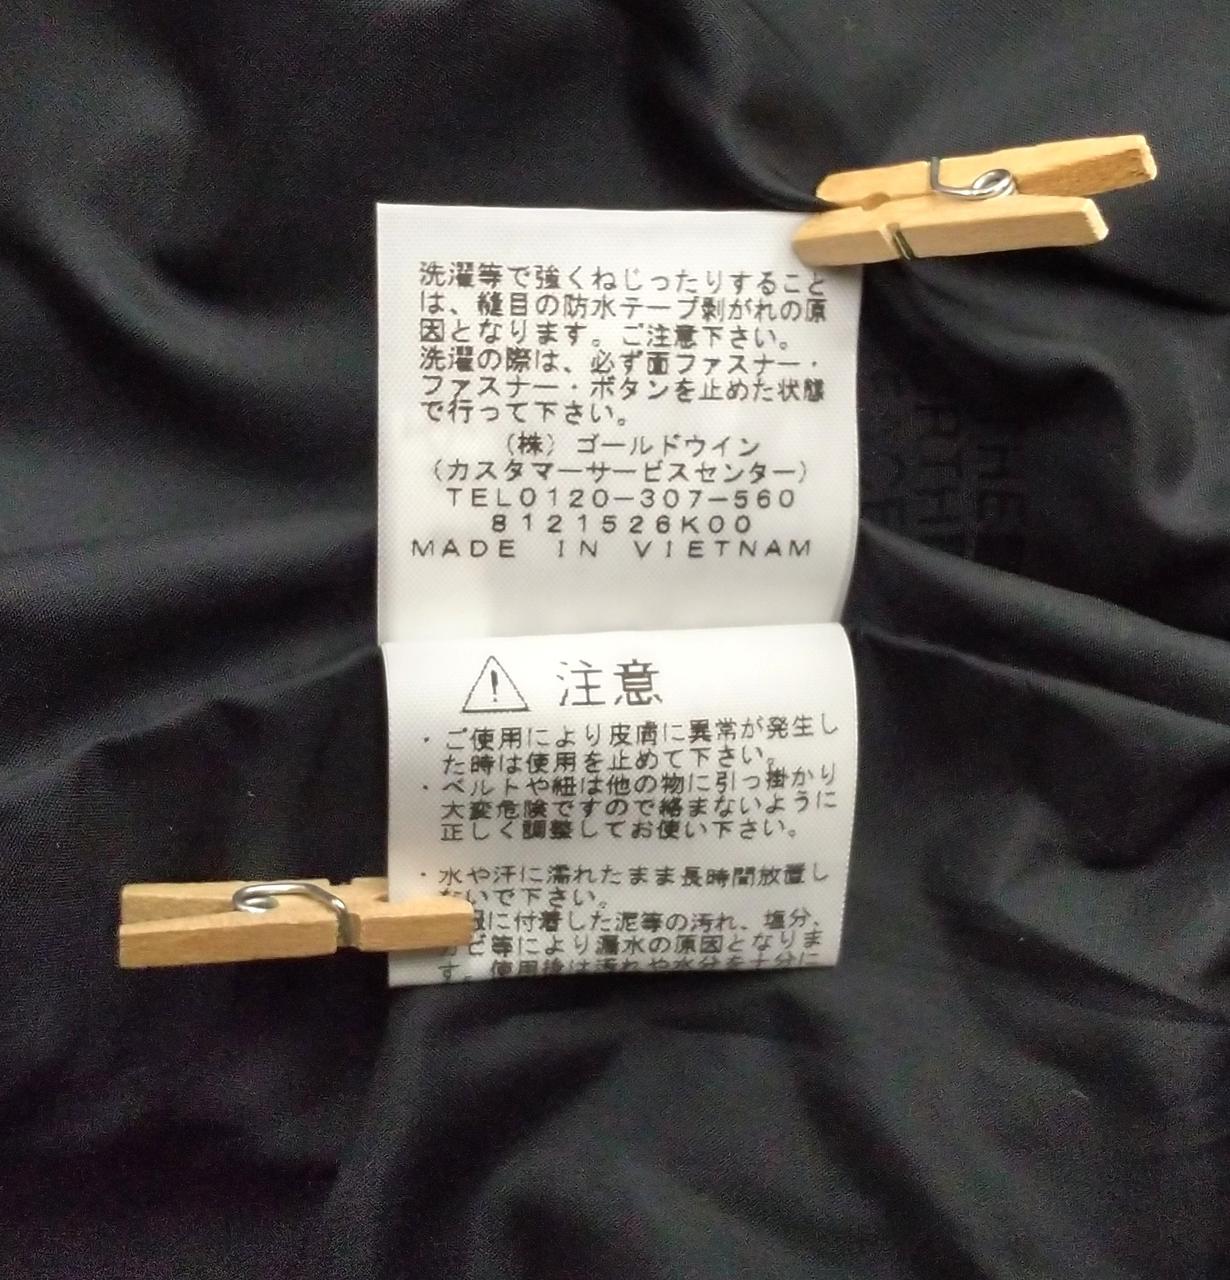 洗濯等で強くねじったりすること
は、縫目の防水テープ剥がれの原
因となります。ご注意下さい。
洗濯の際は、必ず面ファスナー・
ファスナー・ボタンを止めた状態
で行って下さい。
(株) ゴールドウイン
(カスタマーサービスセンター)
TEL0120-307-560
8121526K00
MADE IN VIETNAM
注意
・ご使用により皮膚に異常が発生し
た時は使用を止めて下さい。
・ベルトや紐は他の物に引っ掛かり
大変危険ですので絡まないように
正しく調整してお使い下さい。
・水や汗に濡れたまま長時間放置し
ないで下さい。
服に付着した泥等の汚れ、塩分、
カビ等により漏水の原因となりま
す。使用後は汚れや水分を十分に